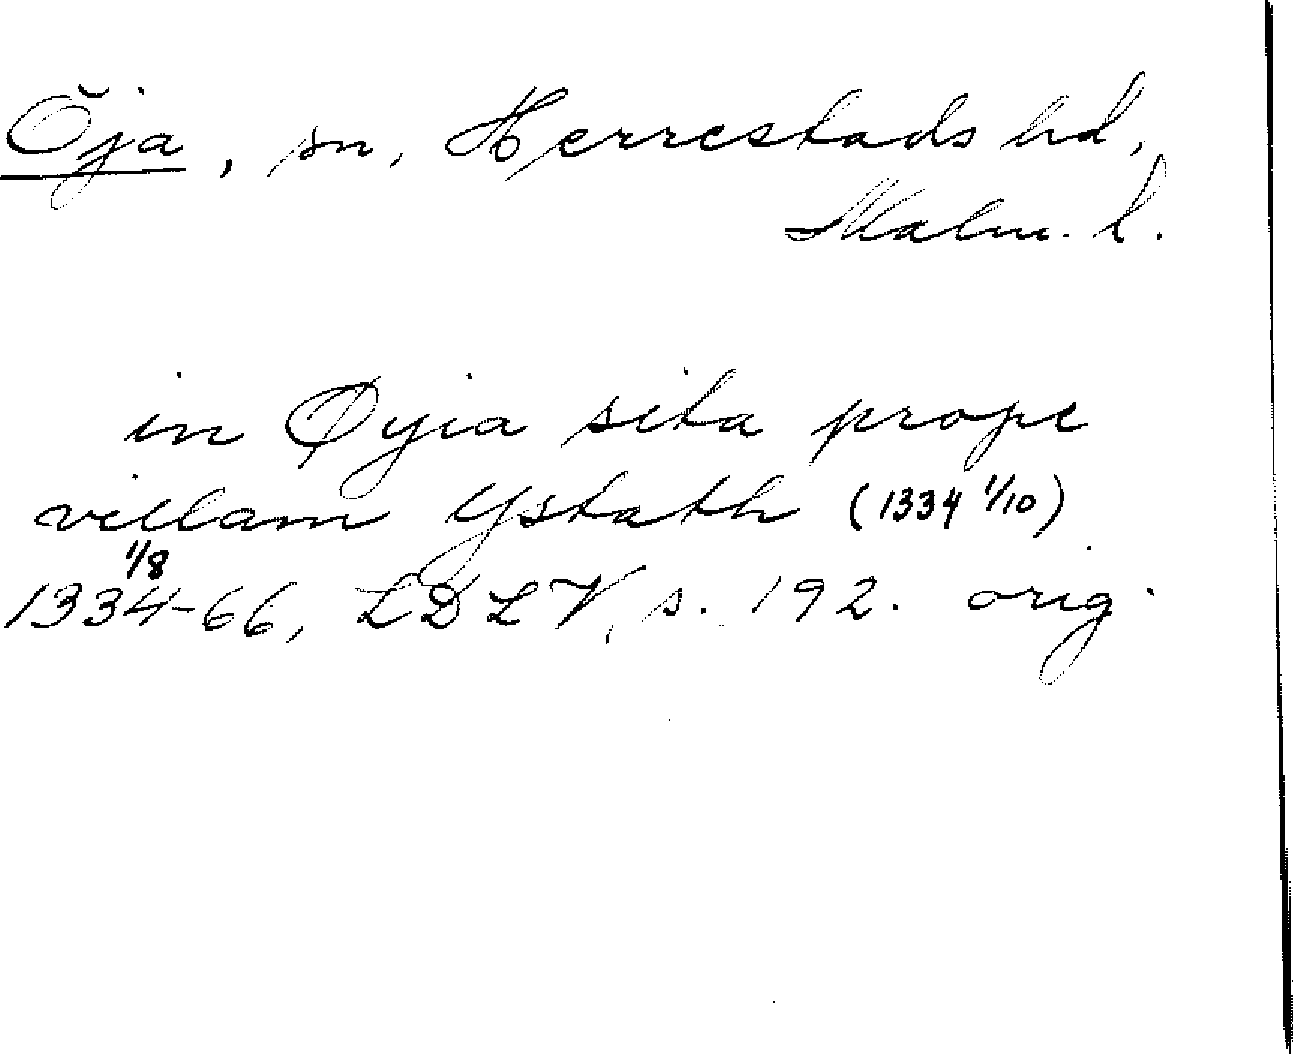 Öja, sn, Herrestads hd,
Malm. l.
in Øyia sita prope
villam Ystath (1334 1/10)
1/8
1334-66, LDLV, s. 192. orig.